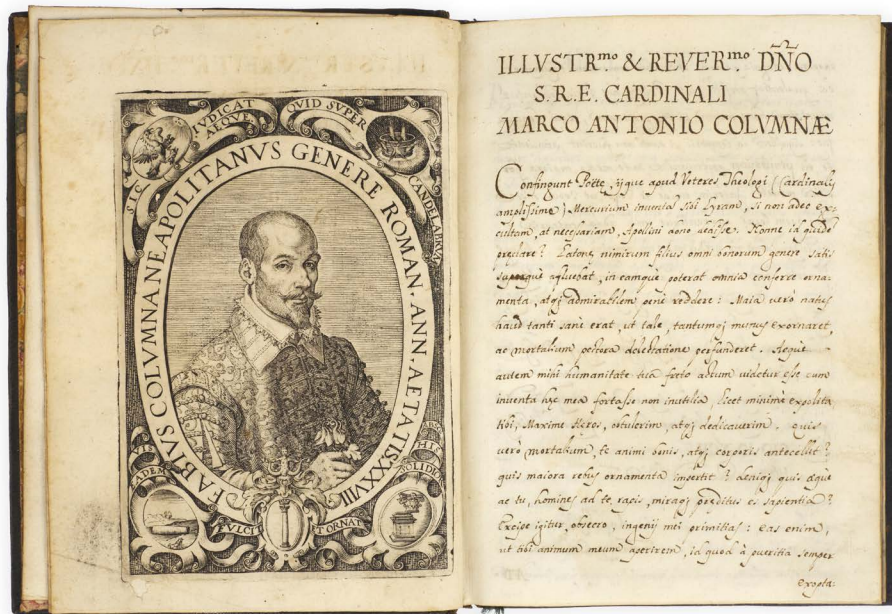 SIC
IVDICAT
AEQVE
QVID SVPER
CANDELABRVM
FABIVS COLVMNA NEAPOLITANVS GENERE ROMAN. ANN. AETATS XXXVIII
VIS
EADEM
FVLCIT
ORNAT
SOLIDIO
ILLVSTR.mo & REVER.mo DÑO
S. R. E. CARDINALI
MARCO ANTONIO COLVMNÆ
Confingunt Poëtę, ijque apud Veteres Theologi (Cardinalis
amplissime) Mercurium inventã sibi Lyram, si non adeo ex-
cultam, at necessariam, Apollini dono dedisse. Nonne id quidẽ
preclare? Latonę nimirum filius omni bonorum genere satis
superque affluebat, in eamque poterat omnia conferre orna-
menta, atqj admirabilem penè reddere: Maia verò natus
haud tanti sanè erat, ut tale, tantumqj munus exornaret,
ac mortalium pectora delectatione perfunderet. Aeque
autem mihi humanitate tua fortè actum videtur esse cum
inventa hæc mea fortasse non inutilia, licet minimè expolita
tibi, Maxime Heros, obtulerim, atqj dedicaverim. quis
verò mortalium, te animi bonis, atqj corporis antecellit?
quis maiora rebus ornamenta impertit? deniqj quis æque
ac tu, homines ad te rapis, miraqj preditus es sapientia?
Excipe igitur, obsecro, ingenij mei primitias: eas enim,
ut tibi animum meum aperirem, id quod à pueritia semper
exopta-